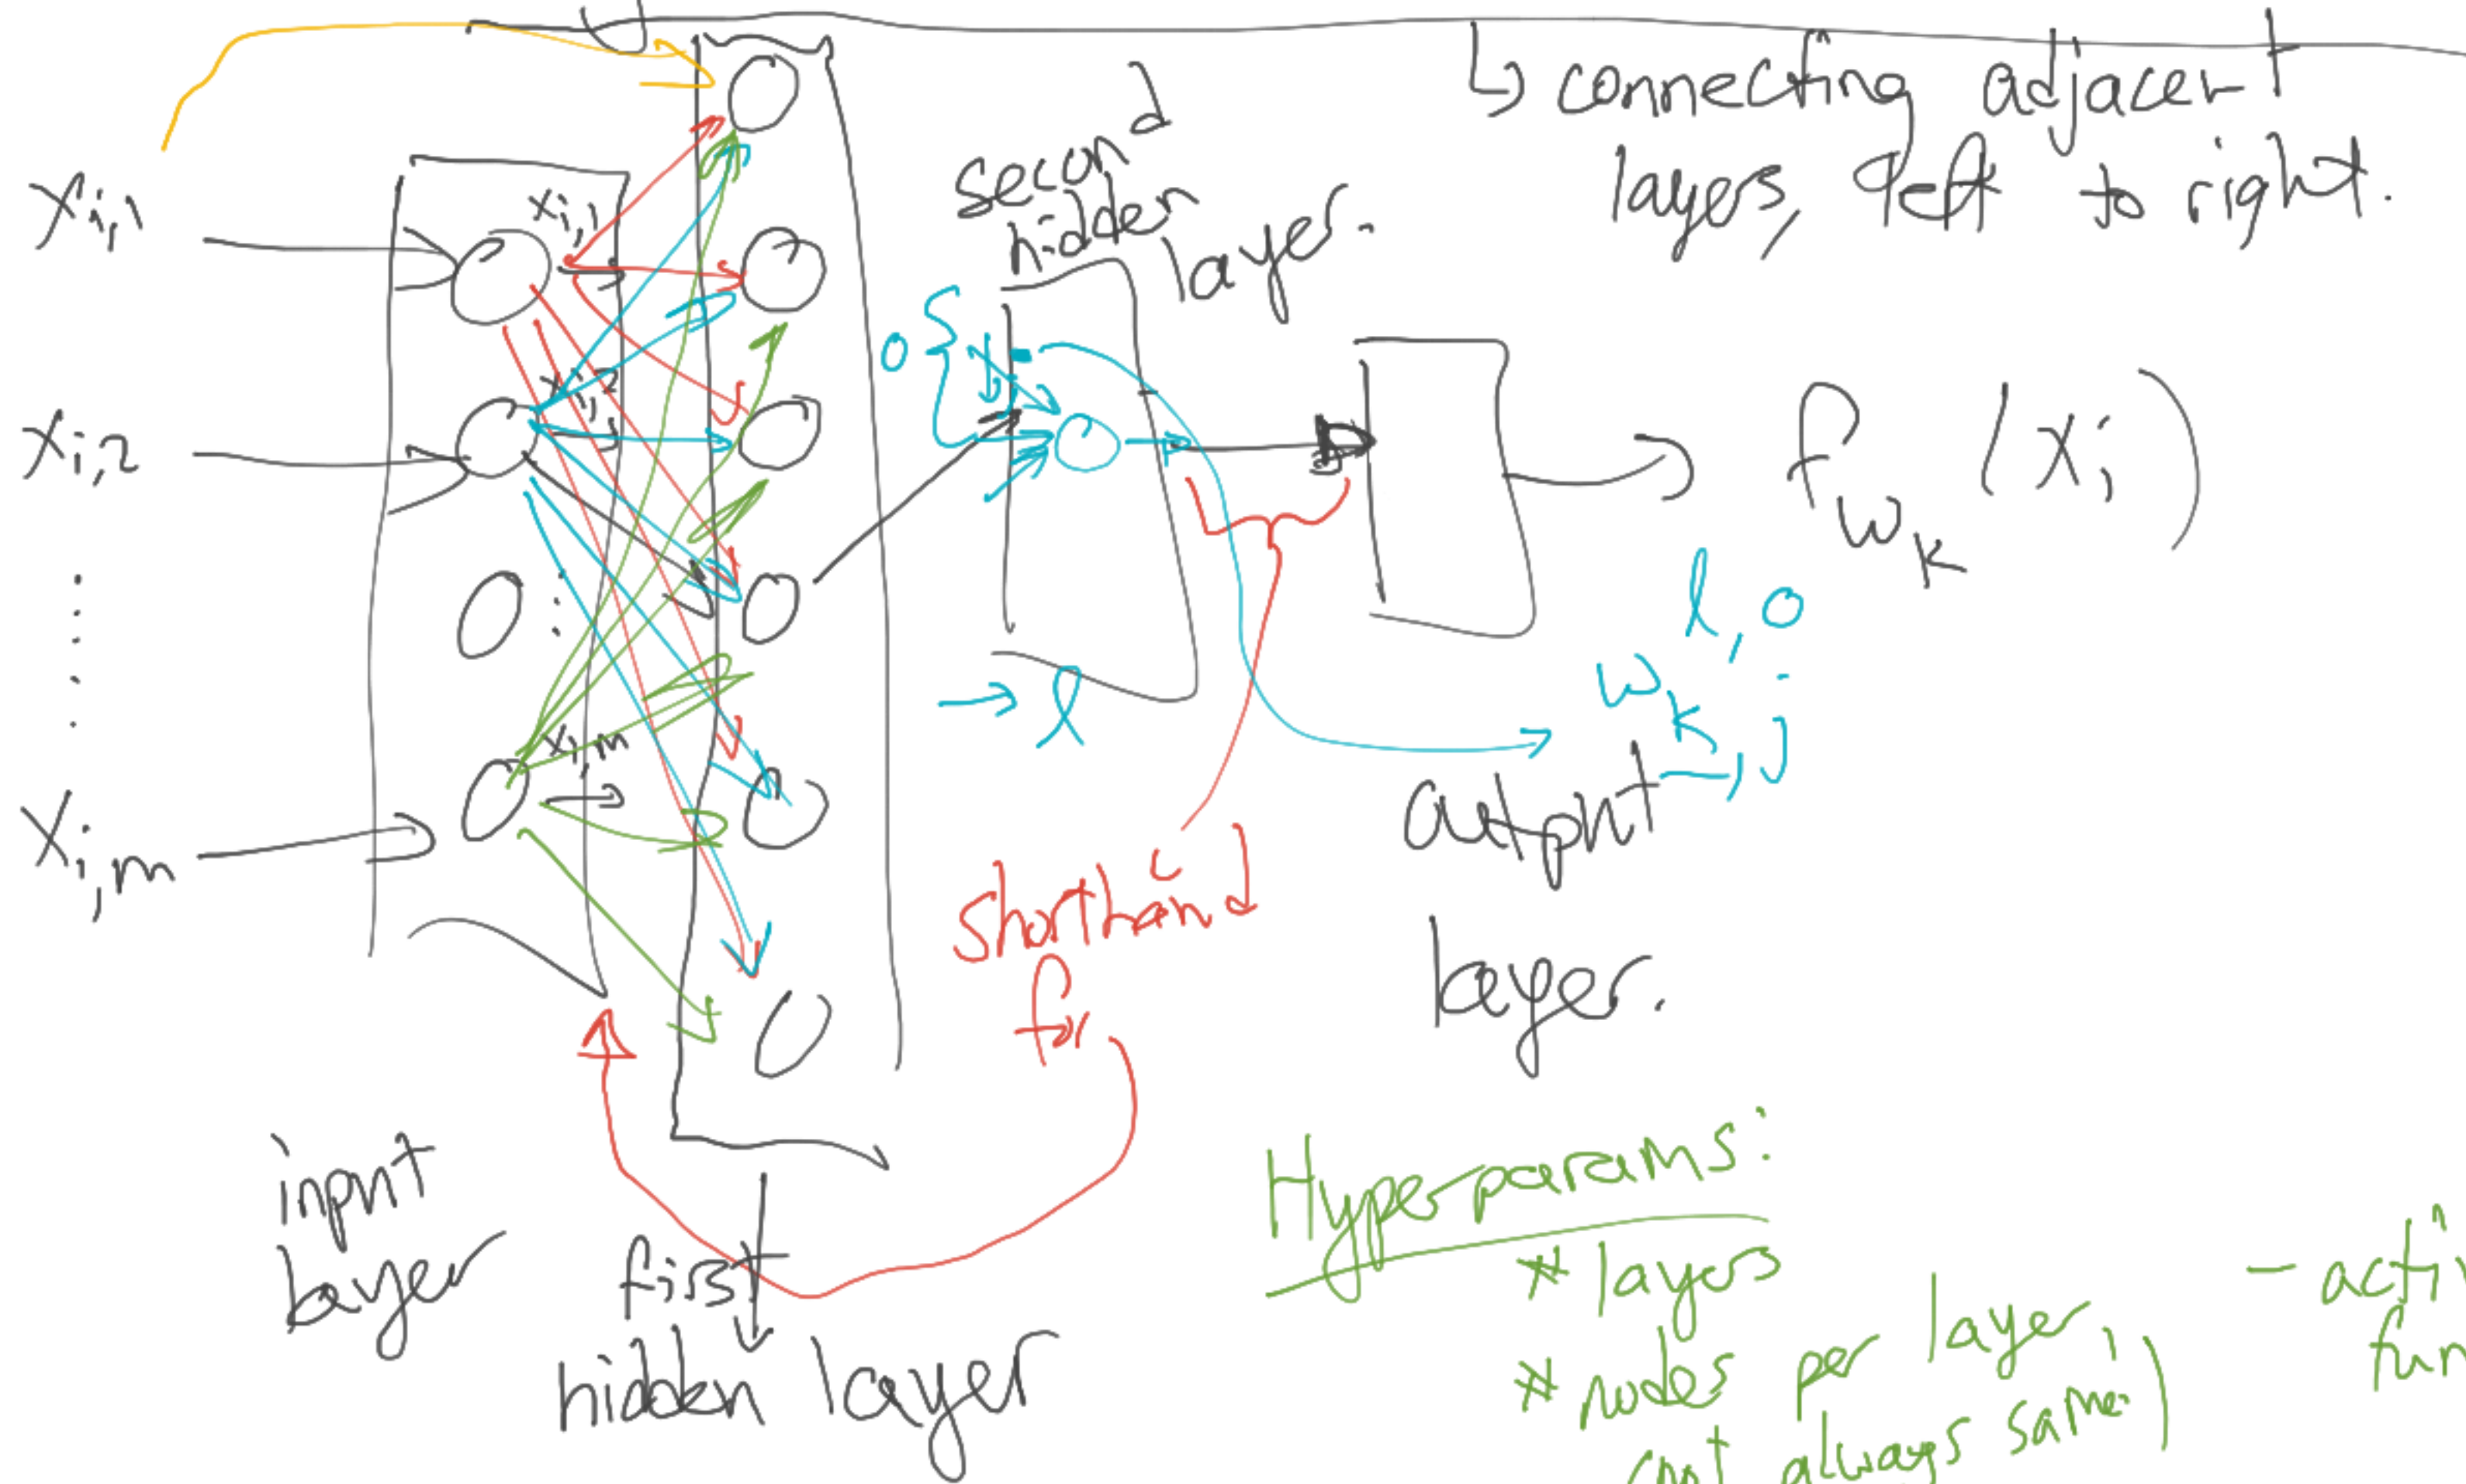 ↳ connecting adjacent
layers, left to right.
second
hidden
layer.
x_{i,1}
x_{i,1}
x_{i,2}
x_{i,2}
x_{i,m}
x_{i,m}
o
l
f_{w_k}(x_i)
w_{k,j}^{l,o}
output
layer.
shorthand
for
input
layer
first
hidden layer
Hyperparams:
* layers
* nodes per layer,
not always same)
- acti
fun